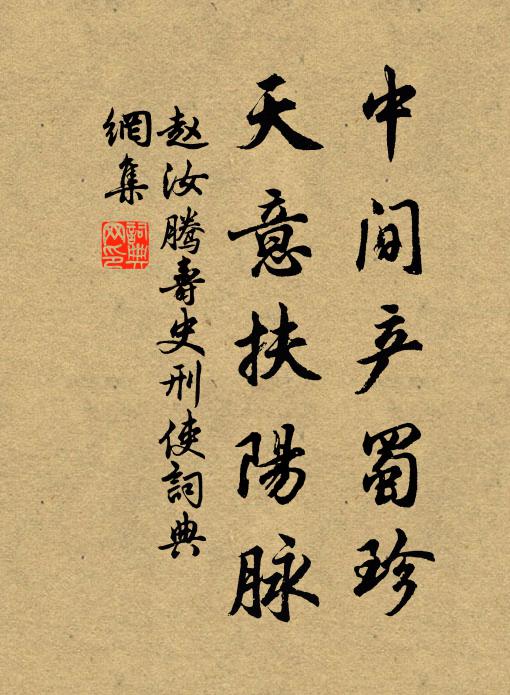 中间产蜀珍
天意扶陽脉
赵汝腾壽史刑使詞典
網集
詞典
网印